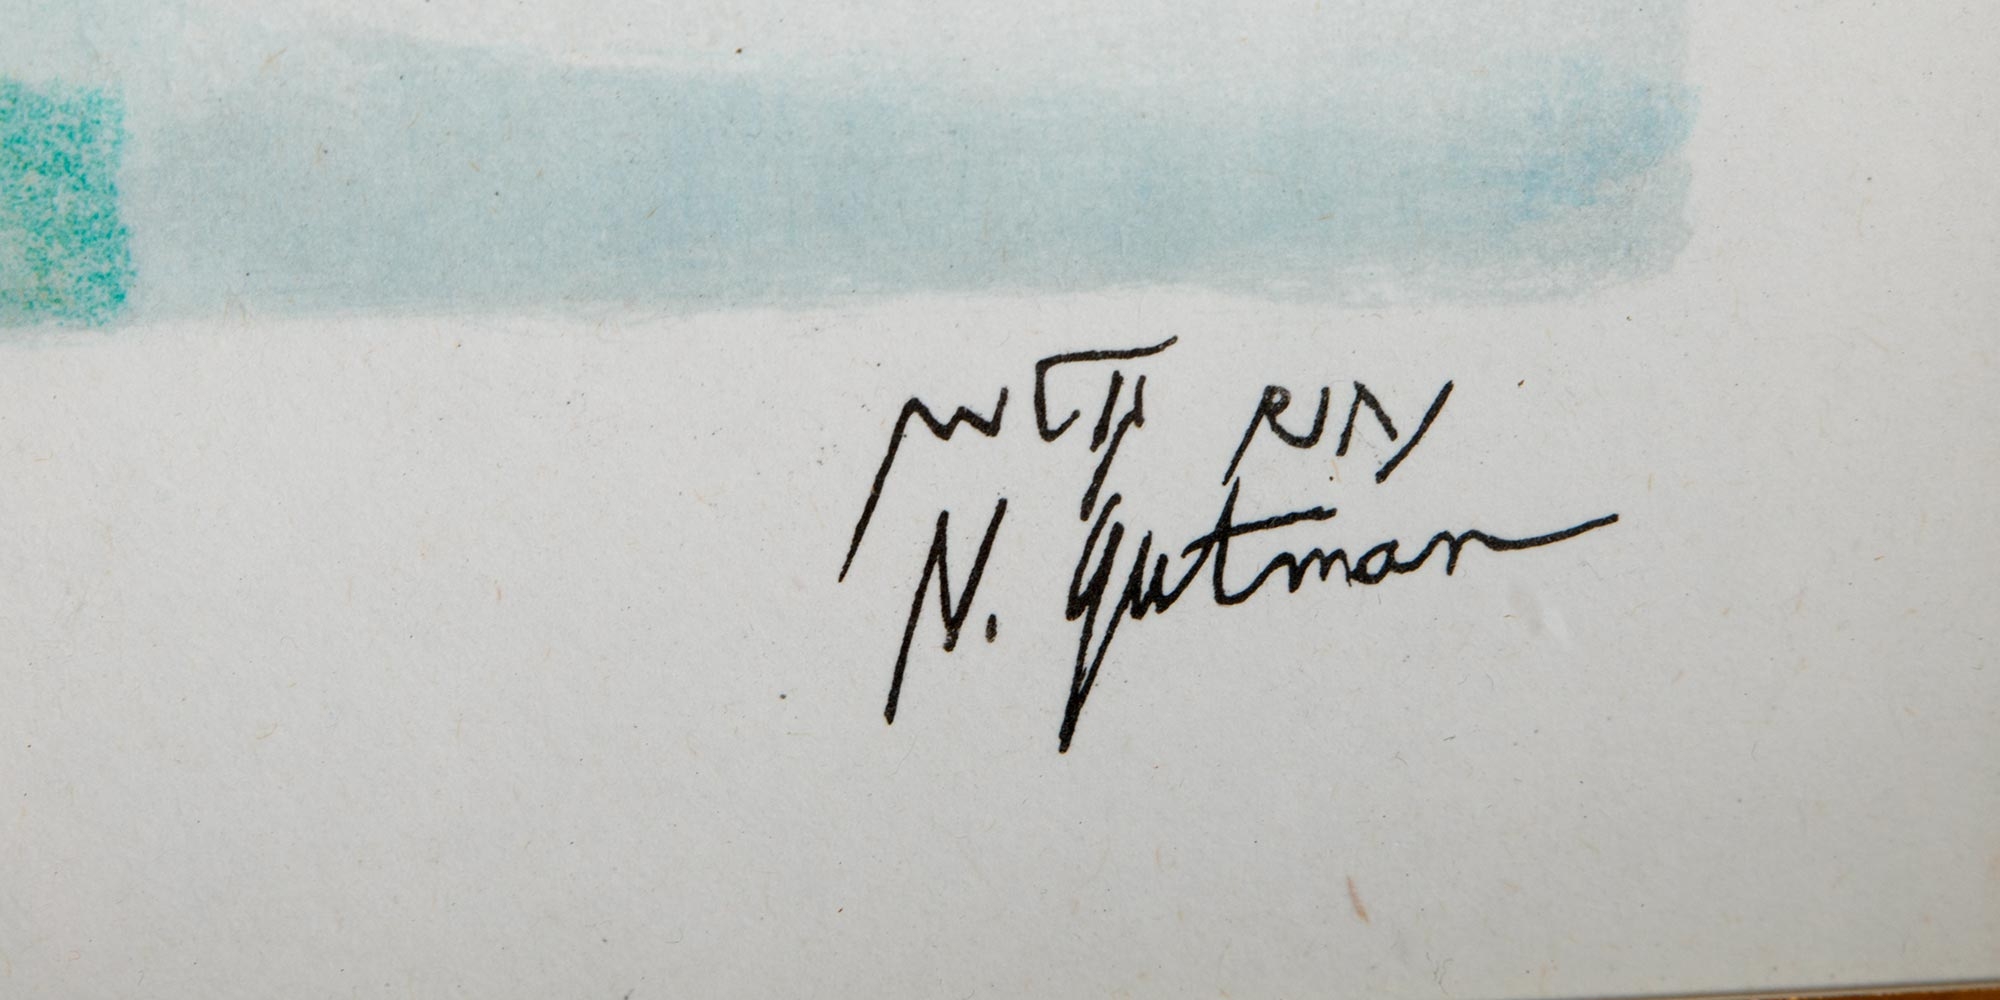 נחום גוטמן
N. Gutman